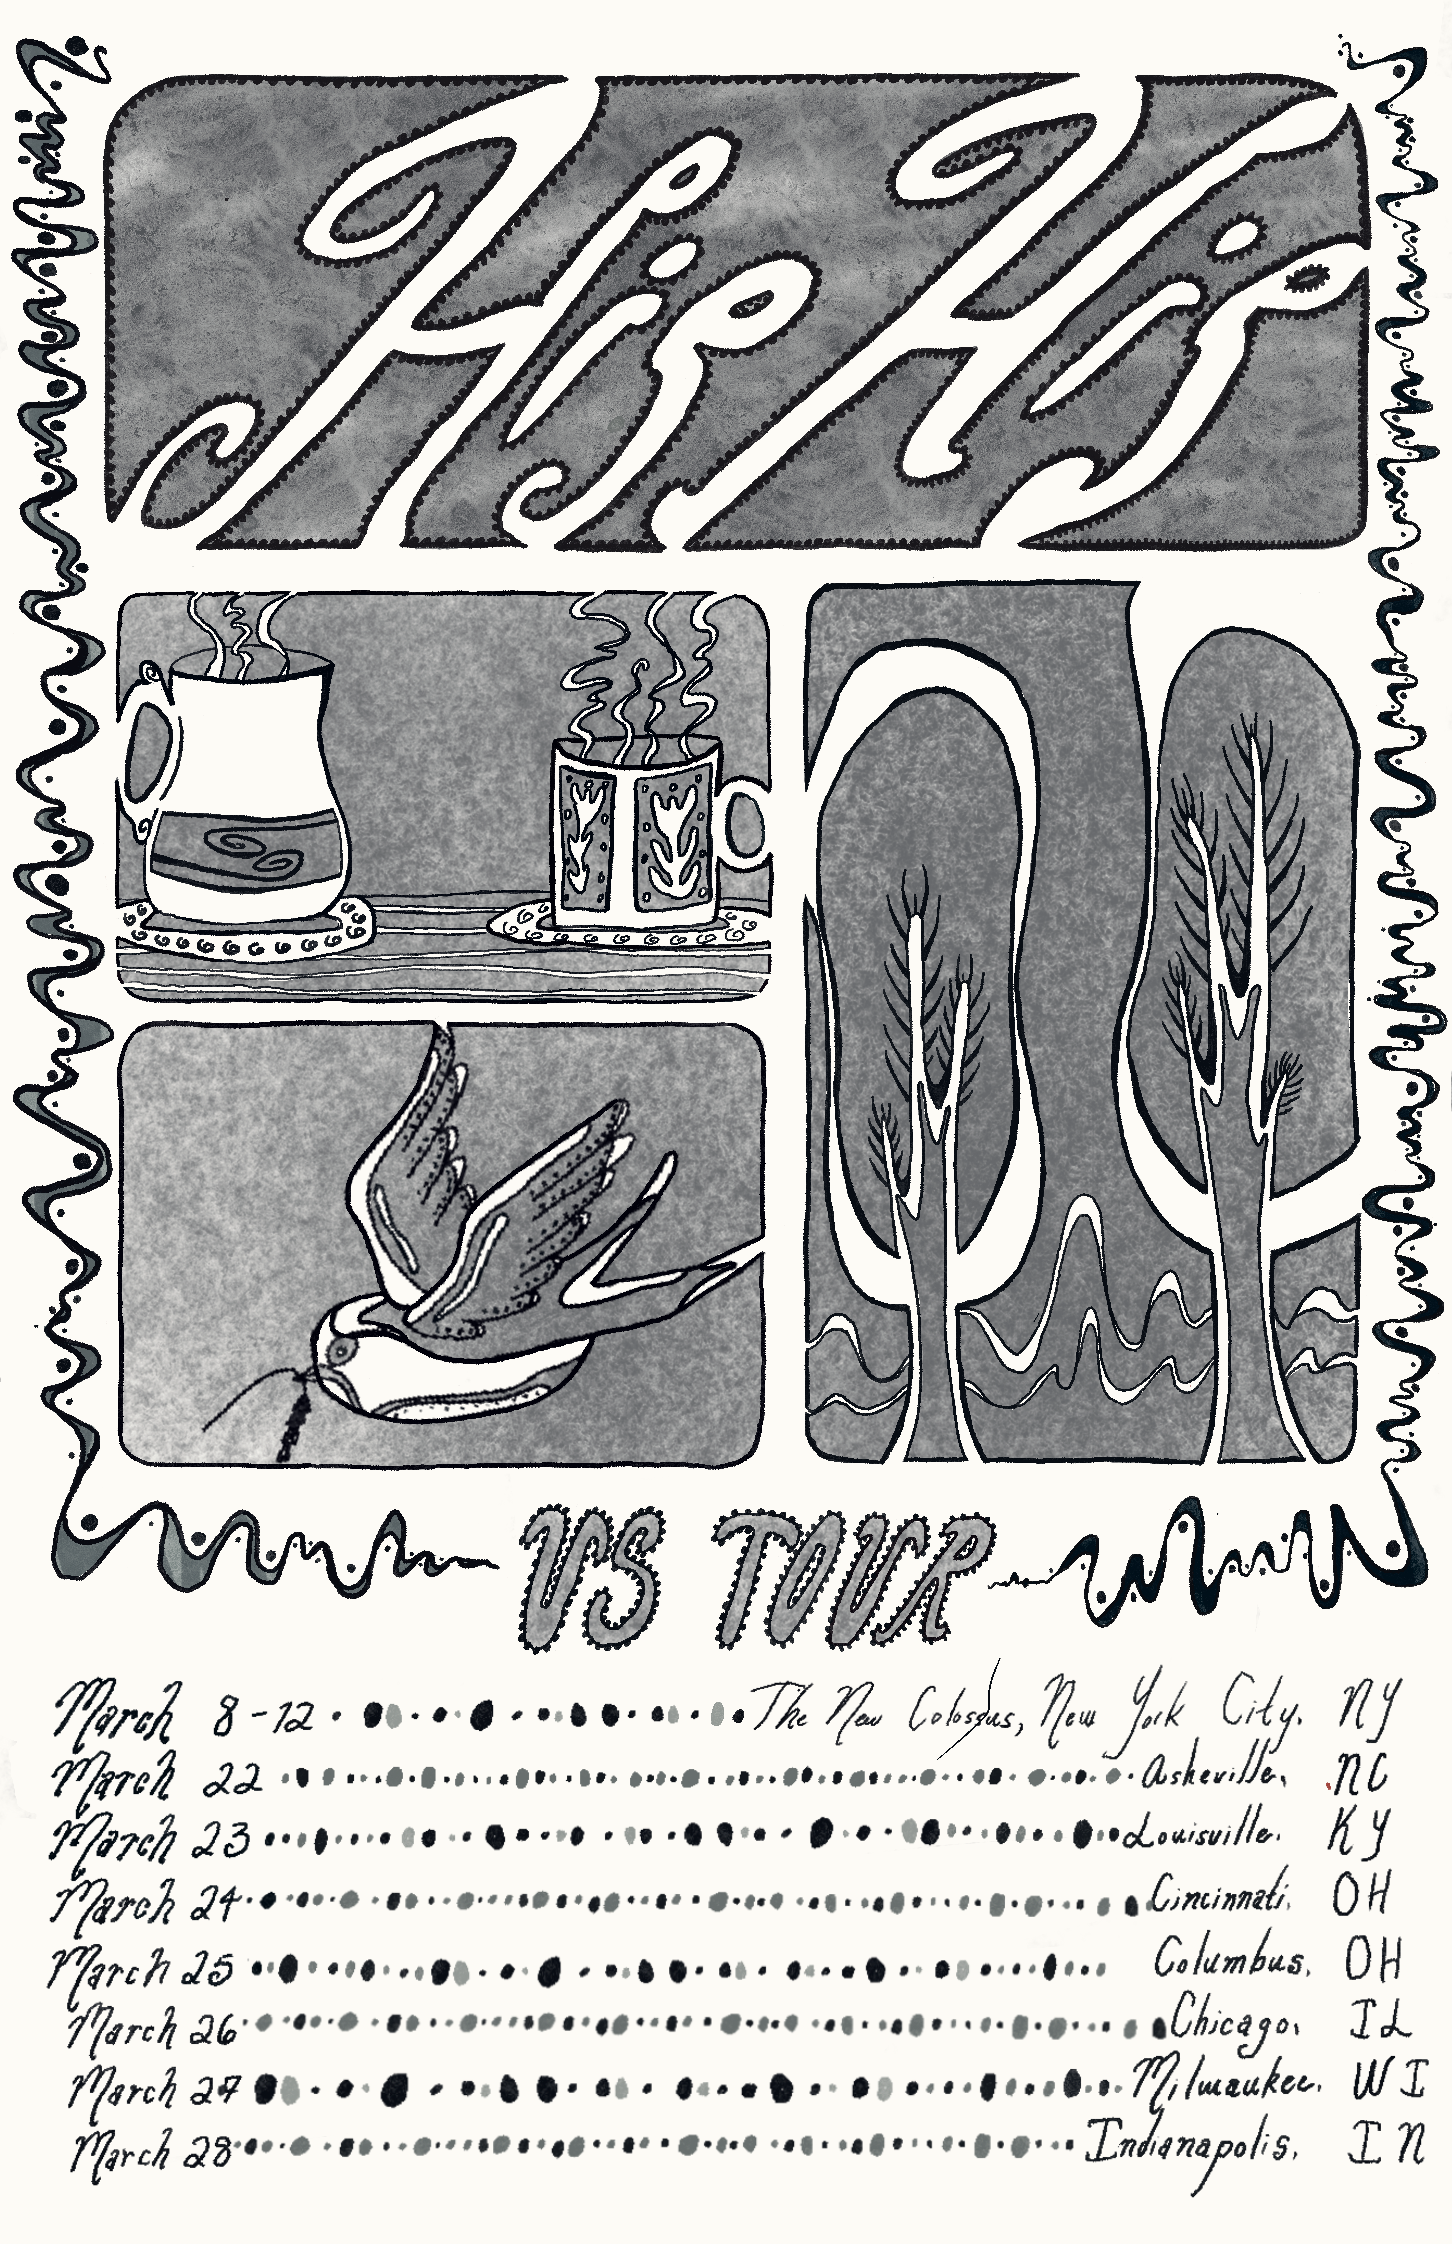 Hip Hip
US TOUR
March 8-12 The New Colossus, New York City, NY
March 22 Asheville, NC
March 23 Louisville, KY
March 24 Cincinnati, OH
March 25 Columbus, OH
March 26 Chicago, IL
March 27 Milwaukee, WI
March 28 Indianapolis, IN